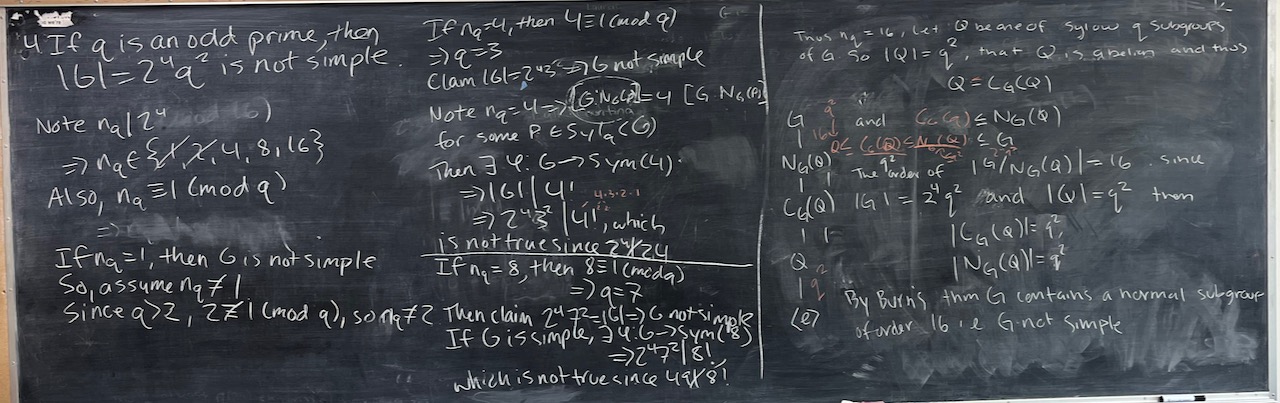 4. If q is an odd prime, then
|G|=2⁴q² is not simple.
Note n_q | 2⁴
⇒ n_q ∈ {1, 2, 4, 8, 16}
Also, n_q ≡ 1 (mod q)
⇒
If n_q=1, then G is not simple
So, assume n_q ≠ 1
Since q>2, 2≢1 (mod q), so n_q≠2
If n_q=4, then 4≡1 (mod q)
⇒ q=3
Claim |G|=2⁴3² ⇒ G not simple
Note n_q=4 ⇒ [G:N_G(P)]=4 [G:N_G(P)]
for some P ∈ Syl_q(G)
Then ∃ φ: G→Sym(4).
⇒ |G| | 4!
4·3·2·1
⇒ 2⁴·3² | 4!, which
is not true since 2⁴∤24
If n_q=8, then 8≡1 (mod q)
⇒ q=7
Then claim 2⁴7²=|G| ⇒ G not simple
If G is simple, ∃ φ: G→Sym(8)
⇒ 2⁴7² | 8!
which is not true since 49∤8!
Thus n_q=16, Let Q be one of Sylow q subgroups
of G. So |Q|=q², that Q is abelian and thus
Q = C_G(Q)
and C_G(Q) ≤ N_G(Q)
Q ≤ C_G(Q) ≤ N_G(Q) ≤ G
The order of |G/N_G(Q)|=16 since
|G|=2⁴q² and |Q|=q² then
|C_G(Q)|=q²,
|N_G(Q)|=q²
By Burn's thm G contains a normal subgroup
of order 16 i.e G not simple
G
16
N_G(Q)
C_G(Q)
Q
q²
⟨e⟩